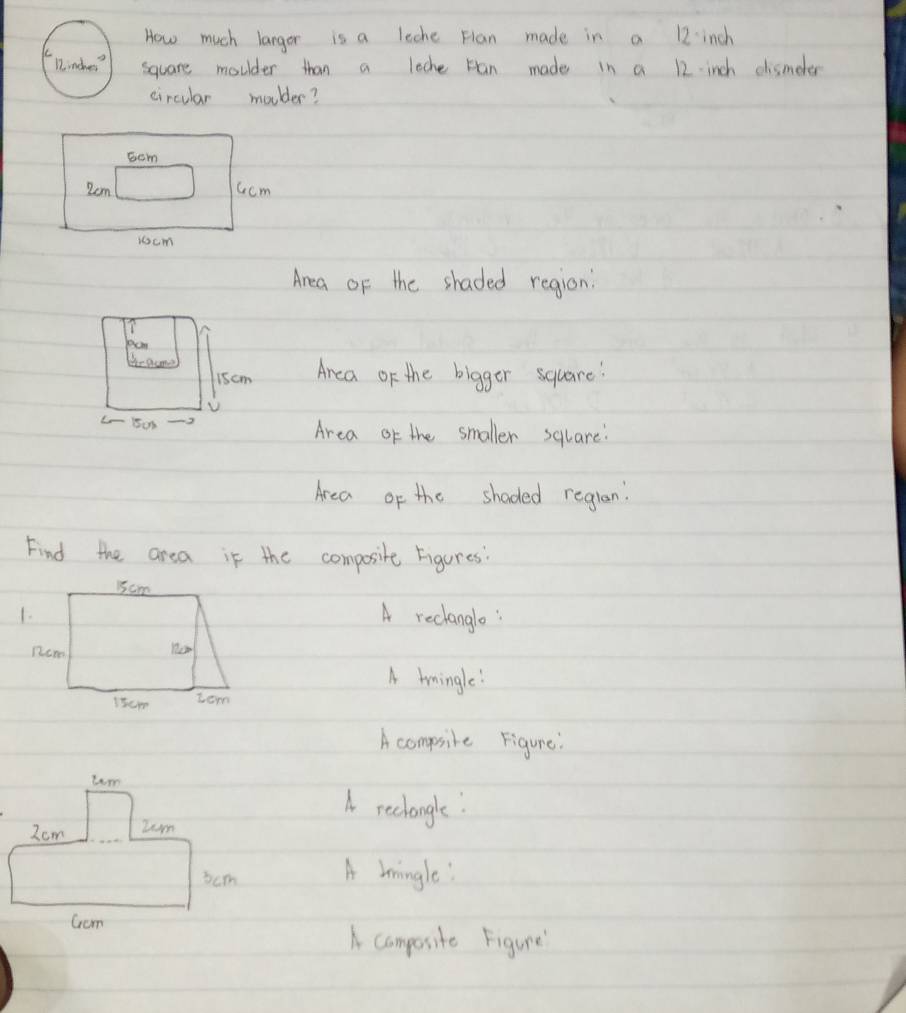 How much larger is a leche Flan made in a 12-inch
"12 inches"
square moulder than a leche Flan made in a 12-inch dismeter
circular moulder?
5cm
2cm
6cm
10cm
Area of the shaded region:
9cm
9cm
15cm
Area of the bigger square:
15cm
Area of the smaller square:
Area of the shaded region:
Find the area if the composite Figures:
15cm
1.
A rectangle:
12cm
12cm
A tringle:
15cm
2cm
A composite Figure:
2cm
A rectangle:
2cm
2cm
3cm
A tringle:
6cm
A composite Figure: